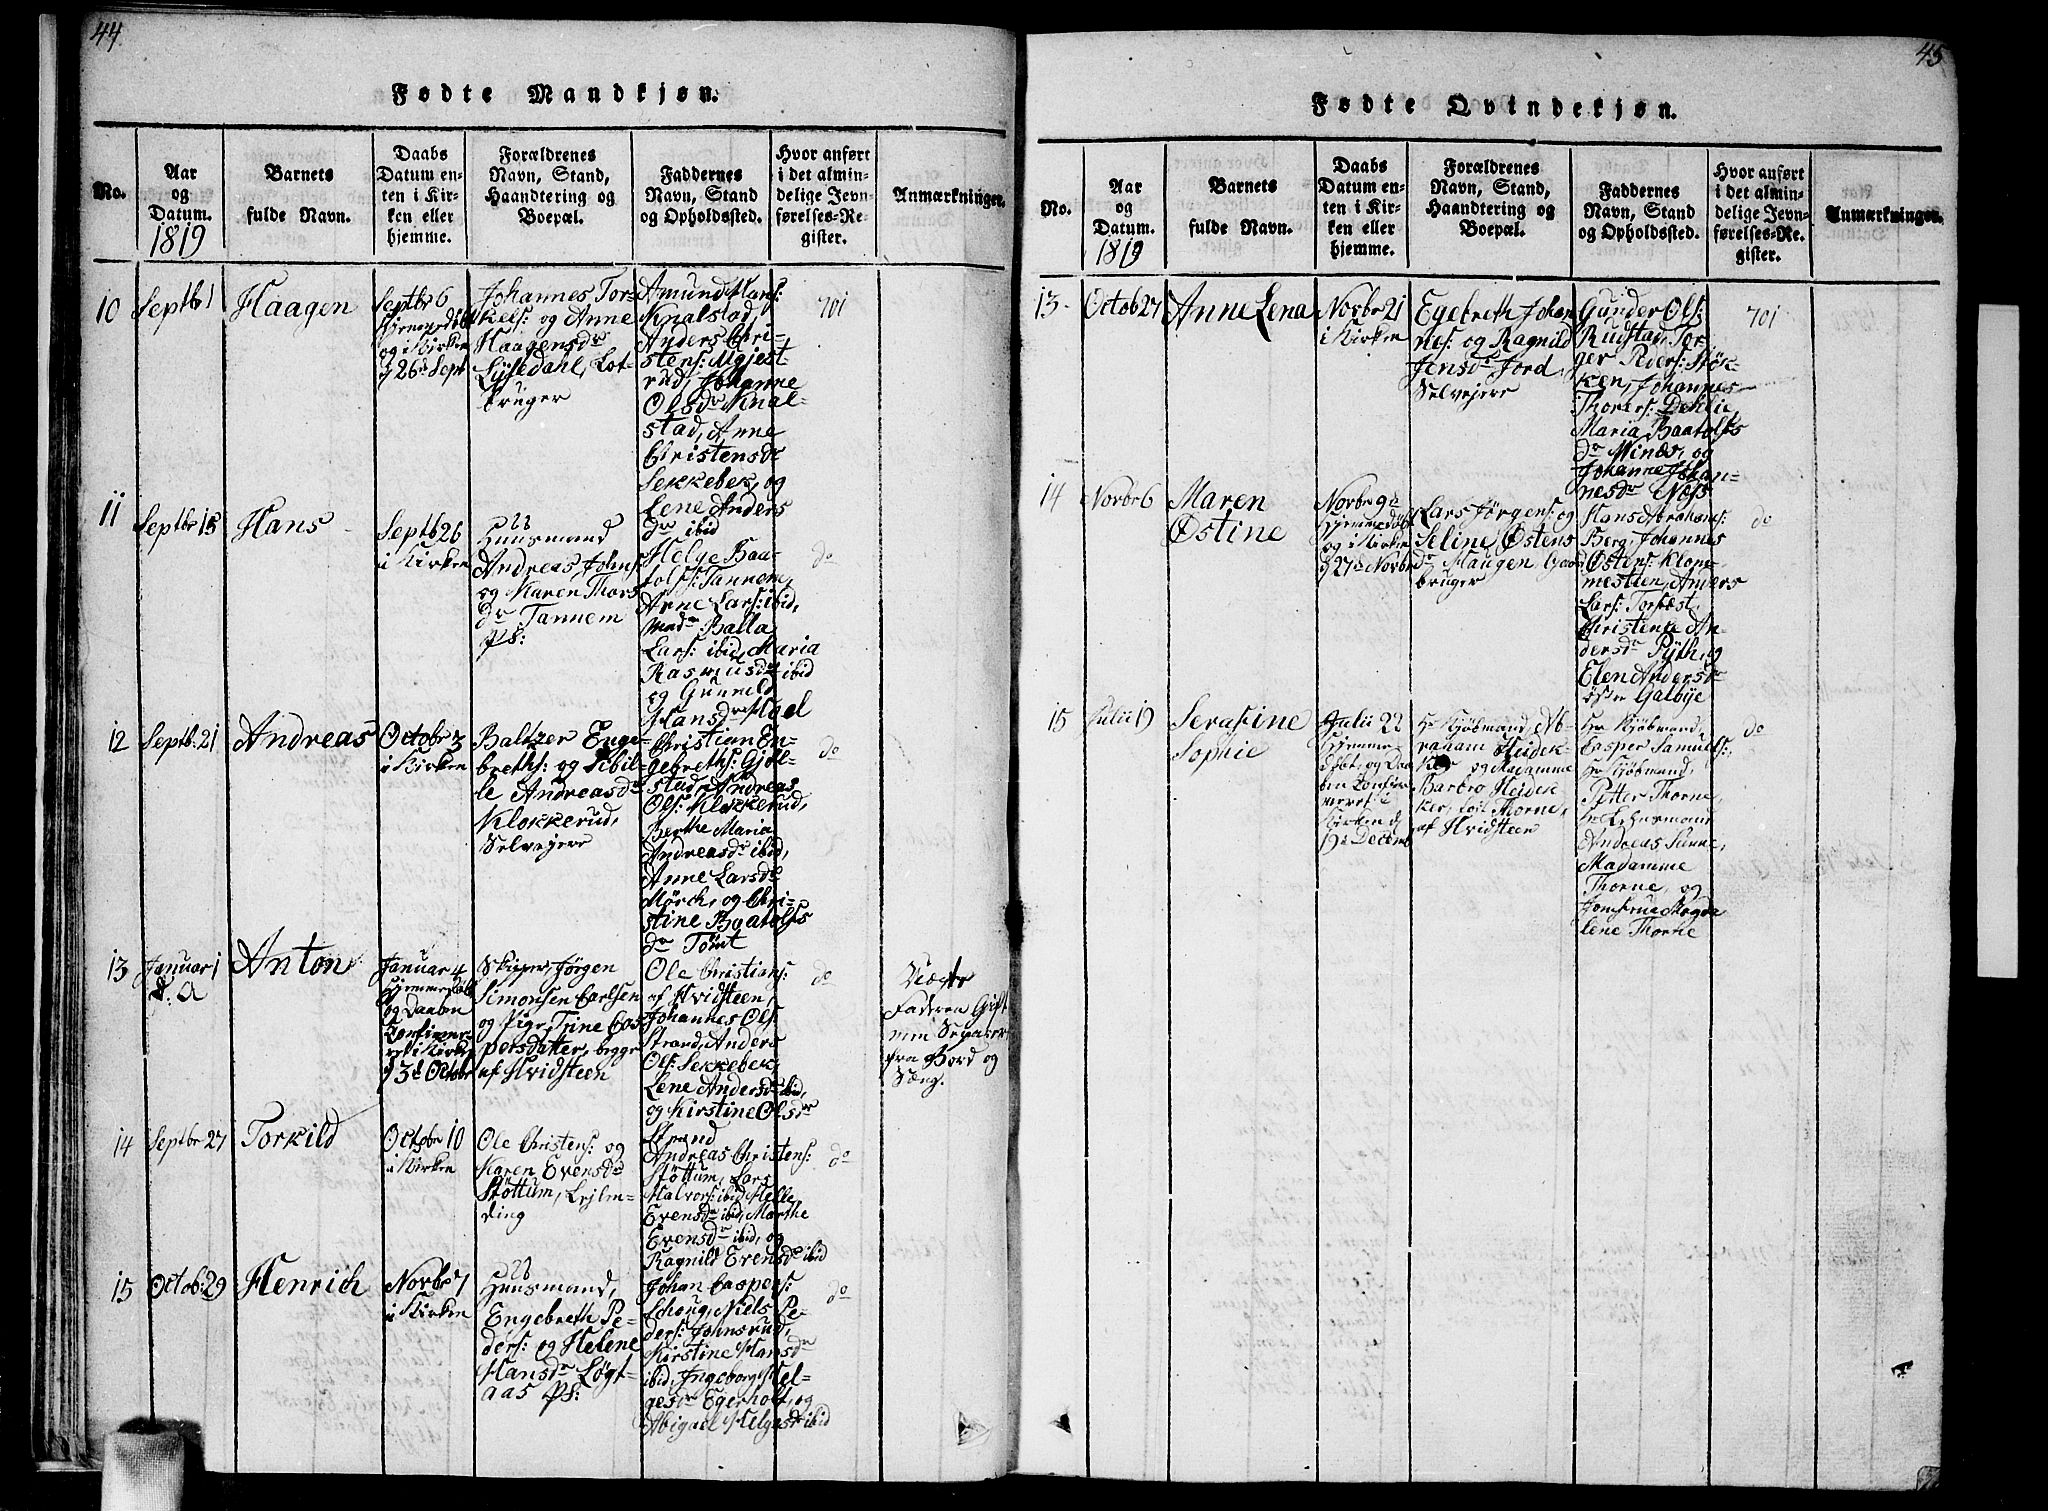 44.
Fødte Mandkjøn.
No.
Aar
og
Datum.
1819
Barnets
fulde Navn.
Daabs
Datum en-
ten i Kir-
ken eller
hjemme.
Forældrenes
Navn, Stand,
Haandtering og
Boepæl.
Faddernes
Navn, Stand
og Opholdssted.
Hvor anført
i det almin-
delige Jevn-
førelses-Re-
gister.
Anmærkninger.
10
Septbr 1
Haagen
Septbr 6
hjemmedøbt
og i Kirken
d 26d Sept
Johannes Tor-
kels: og Anne
Haagensdr
Lysedahl, Lot-
bruger
Amund Hans:
Knalstad,
Anders Chri-
stens: Mgjest-
rud, Johanne
Olsdr Knal-
stad, Anne
Christensdr
Sekkebek, og
Lene Anders
dr ibid
701
11
Septbr 15
Hans
Septb 26
i Kirken
Huusmand
Andreas Johns
og Karen Thors
dr Tannem
Ps:
Helge Baa-
tolfs: Tannem,
Arne Lars: ibid,
Balla
Lars: ibid, Maria
Rasmusdr ibid
og Gunneld
Hansdr Moel
do
12
Septb: 21
Andreas
Octobr 3
i Kirken
Baltzer Enge-
breths: og Sibil-
le Andreasdr
Klokkerud,
Selvejere
Christian En-
gebreths: Gjøl-
stad, Andreas
Ols: Klokkerud,
Berthe Maria
Andreasdr ibid,
Anne Larsdr
Mørch, og Chri-
stine Baatolfs
dr Tomt
do
13
Januar 1
d. A
Anton
Januar 4
hjemmedøbt
og Daaben
Confirme-
ret i Kirken
d 3d Octobr
Skipper Jørgen
Simonsen Carlsen
og Pige Trine Cas-
persdatter, begge
af Hvidsteen
Ole Christians:
af Hvidsteen,
Johannes Ols:
Strand, Anders
Ols: Sekkebek,
Lene Andersdr ibid,
og Kirstine Olsdr
Strand
do
Uægte
Faderen Gift
men Separert
fra Bord og
Sæng.
14
Septbr 27
Torkild
Octobr 10
i Kirken
Ole Christens: og
Karen Evensdr
Støttum, Lejlen-
ding
Andreas Christens:
Støttum, Lars
Halvors: ibid, Helle
Evensdr ibid, Marthe
Evensdr ibid, og
Ragnild Evensdr ibid
do
15
Octob: 29
Henrich
Norbr 7
i Kirken
Huusmand,
Engebreth Pe-
ders: og Helene
Hansdr Løgt-
aas Ps:
Johan Caspers:
Schoug, Niels Pe-
ders: Johnsrud,
Kirstine Hansdr
ibid, Ingeborg Hel-
gesdr Egerholt, og
Abigael Helgesdr ibid
do
45
Fødte Qvindekjøn.
No.
Aar
og
Datum.
1819
Barnets
fulde Navn.
Daabs
Datum en-
ten i Kir-
ken eller
hjemme.
Forældrenes
Navn, Stand,
Haandtering og
Boepæl.
Faddernes
Navn, Stand
og Opholdssted.
Hvor anført
i det almin-
delige Jevn-
førelses-Re-
gister.
Anmærkninger.
13
Octob 27
Anne Lena
Norbr 21
i Kirken
Egebreth Johan-
nes: og Ragnild
Jensdr Jord
Selvejere
Gunder Ols:
Rudstad, Tor-
ger Peders: Støk-
ken, Johannes
Thorers: Dehlie,
Maria Baatolfs
dr Mines, og
Johanne Johan-
nesdr Næss
701
14
Norbr 6
Maren
Østine
Norbr 9d
hjemmedøbt
og i Kirken
d 27d Norbr
Lars Jørgens: og
Seline Østens
dr Haugen, Gaard
bruger
Hans Abrahams:
Berg, Johannes
Østens: Klom-
mestien, Anders
Lars: Torbæst,
Christense An-
dersdr Pyth, og
Elen Andersdr
østre Galbye
do
15
Julii 19
Serafine
Sophie
Julii 22
hjemme-
døbt, og Daa-
ben Confir-
meret i
Kirken d
19d Decemb
Hr Kjøbmand Ab-
raham Heidek-
ker og Madamme
Barbro Heidek-
ker, føil Thorne,
af Hvidsteen
Hr Kjøbmand
Casper Samuels:,
Hr Kjøbmand,
Petter Thorne,
Hr Lehnsmann
Andreas Sunne,
Madamme
Thorne, og
Jomfrue Magda
lene Thorne
do